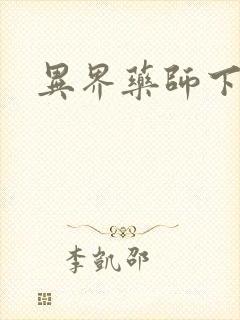 異界藥師下
李凱邵